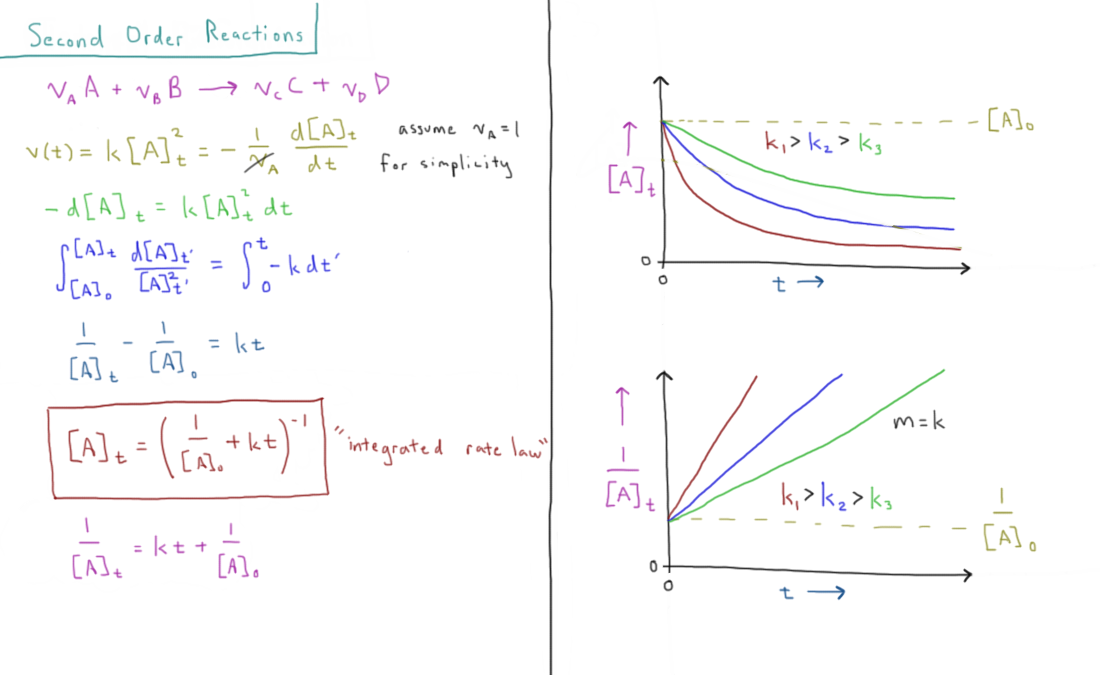 Second Order Reactions
ν_A A + ν_B B → ν_C C + ν_D D
v(t) = k[A]_t^2 = - 1/ν_A d[A]_t/dt assume ν_A = 1
for simplicity
-d[A]_t = k[A]_t^2 dt
∫_{[A]_0}^{[A]_t} d[A]_t'/[A]_t'^2 = ∫_0^t -k dt'
1/[A]_t - 1/[A]_0 = kt
[A]_t = (1/[A]_0 + kt)^-1 "integrated rate law"
1/[A]_t = kt + 1/[A]_0
[A]_0
k_1 > k_2 > k_3
↑
[A]_t
0
0
t →
↑
m = k
1/[A]_t
k_1 > k_2 > k_3
1/[A]_0
0
0
t →